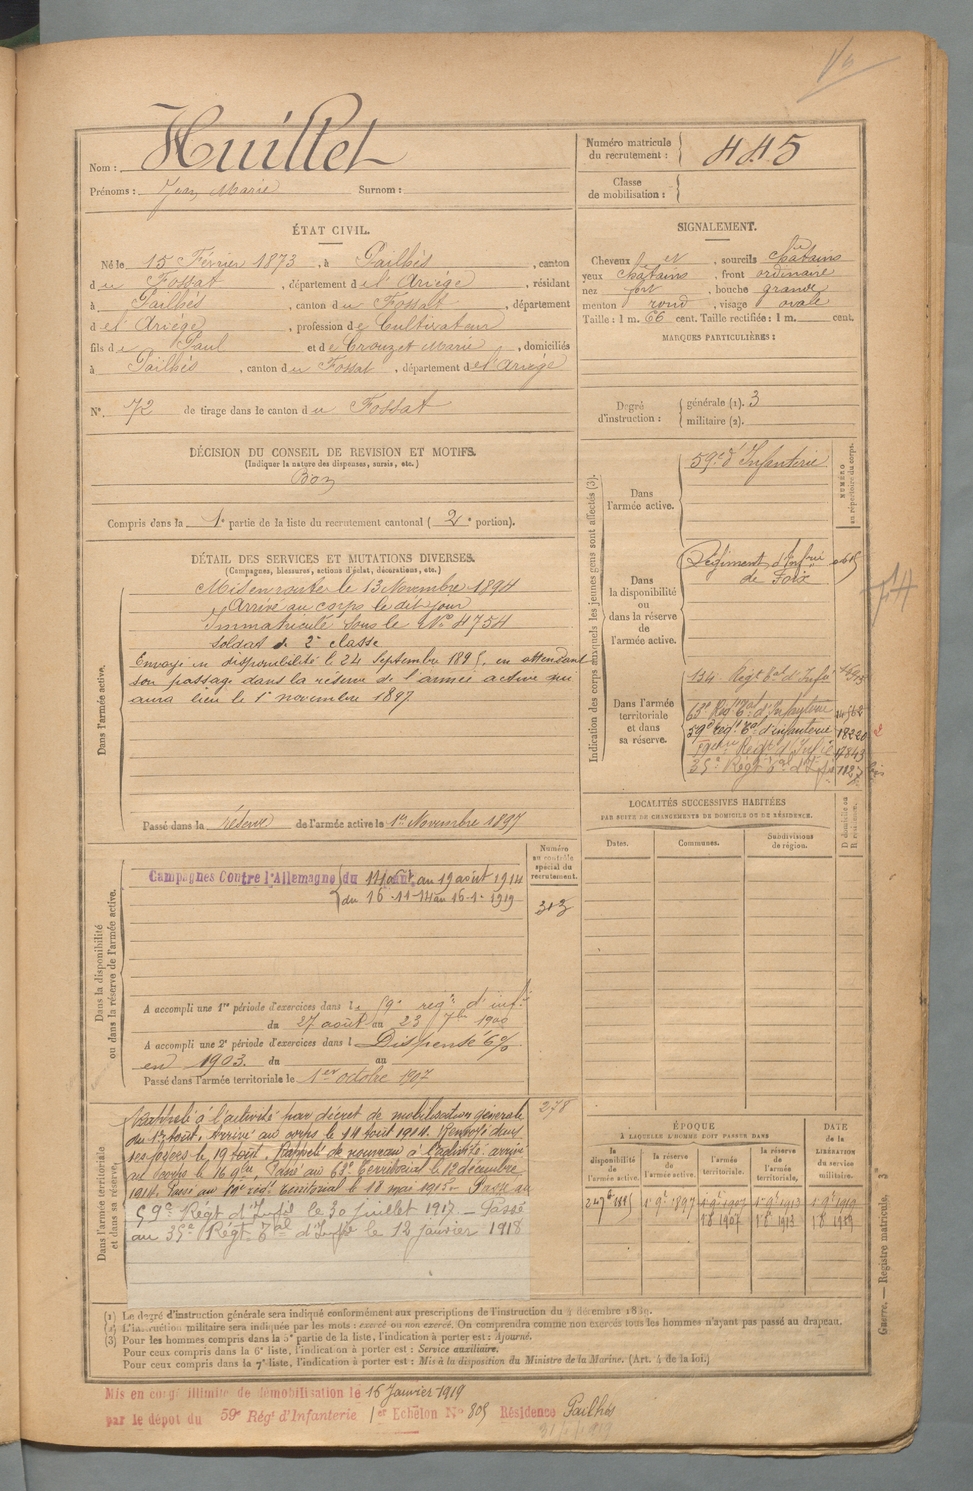 Nom : Huillet
Prénoms : Jean Marie Surnom :
Numéro matricule du recrutement : 445
Classe de mobilisation :
ÉTAT CIVIL.
Né le 15 Février 1873, à Pailhès, canton
du Fossat, département de l'Ariège, résidant
à Pailhès, canton du Fossat, département
de l'Ariège, profession de Cultivateur
fils de Paul et de Crouzet Marie, domiciliés
à Pailhès, canton du Fossat, département de l'Ariège
N° 72 de tirage dans le canton du Fossat
SIGNALEMENT.
Cheveux et, sourcils châtains
yeux châtains, front ordinaire
nez fort, bouche grande
menton rond, visage ovale
Taille : 1 m. 66 cent. Taille rectifiée : 1 m. cent.
MARQUES PARTICULIÈRES :
Degré d'instruction : générale (1). 3
militaire (2).
DÉCISION DU CONSEIL DE REVISION ET MOTIFS.
(Indiquer la nature des dispenses, sursis, etc.)
Bon
Compris dans la 1e partie de la liste du recrutement cantonal (2e portion).
DÉTAIL DES SERVICES ET MUTATIONS DIVERSES.
(Campagnes, blessures, actions d'éclat, décorations, etc.)
Dans l'armée active.
Mis en route le 13 Novembre 1894
Arrivé au corps le dit jour
Immatriculé sous le No 4754
soldat de 2e classe
Envoyé en disponibilité le 24 Septembre 1895, en attendant
son passage dans la réserve de l'armée active qui
aura lieu le 1er novembre 1897
Passé dans la réserve de l'armée active le 1er Novembre 1897
Indication des corps auxquels les jeunes gens sont affectés (3).
NUMÉRO au répertoire du corps.
Dans l'armée active.
59e d'Infanterie
Dans la disponibilité ou dans la réserve de l'armée active.
Régiment d'Infrie
de Foix
Dans l'armée territoriale et dans sa réserve.
134 Régt Tal d'Infie
63e Régt Tal d'Infanterie
59e Régt Tal d'infanterie 18220
Régt d'Infie
35e Régt Tal d'Infie
LOCALITÉS SUCCESSIVES HABITÉES
PAR SUITE DE CHANGEMENTS DE DOMICILE OU DE RÉSIDENCE.
Dates. Communes. Subdivisions de région. D domicile ou R résidence.
Dans la disponibilité ou dans la réserve de l'armée active.
Numéro au contrôle spécial du recrutement.
Campagnes Contre l'Allemagne du 14 août au 19 août 1914
du 16-11-14 au 16-1-1919
313
A accompli une 1re période d'exercices dans le 59e régt d'infie
du 27 août au 23 7bre 1900
A accompli une 2e période d'exercices dans l Dispensé 6%
en 1903. du au
Passé dans l'armée territoriale le 1er octobre 1907
Dans l'armée territoriale et dans sa réserve.
278
Rappelé à l'activité par décret de mobilisation générale
du 1er Août. Arrivé au corps le 14 Août 1914. Renvoyé dans
ses foyers le 19 août. Rappelé de nouveau à l'activité. arrivé
au corps le 16 9bre. Passé au 63e Territorial le 12 décembre
1914. Passé au régt territorial le 18 mai 1915. Passé au
59e Régt d'Infie le 30 juillet 1917 - Passé
au 35e Régt Tal d'Infie le 12 janvier 1918
ÉPOQUE
À LAQUELLE L'HOMME DOIT PASSER DANS
DATE DE LA LIBÉRATION du service militaire.
la disponibilité de l'armée active. la réserve de l'armée active. l'armée territoriale. la réserve de l'armée territoriale.
24 7bre 1895 1er 9bre 1897 1er 9bre 1907 1er 9bre 1913 1er 9bre 1919
1 8 1907 1 8 1913 1 8 1919
(1) Le degré d'instruction générale sera indiqué conformément aux prescriptions de l'instruction du 4 décembre 1889.
(2) L'instruction militaire sera indiquée par les mots : exercé ou non exercé. On comprendra comme non exercés tous les hommes n'ayant pas passé au drapeau.
(3) Pour les hommes compris dans la 5e partie de la liste, l'indication à porter est : Ajourné.
Pour ceux compris dans la 6e liste, l'indication à porter est : Service auxiliaire.
Pour ceux compris dans la 7e liste, l'indication à porter est : Mis à la disposition du Ministre de la Marine. (Art. 4 de la loi.)
Guerre. — Registre matricule. 3e
Mis en congé illimité de démobilisation le 16 Janvier 1919
par le dépôt du 59e Régt d'Infanterie 1er Echelon No 805 Résidence Pailhès